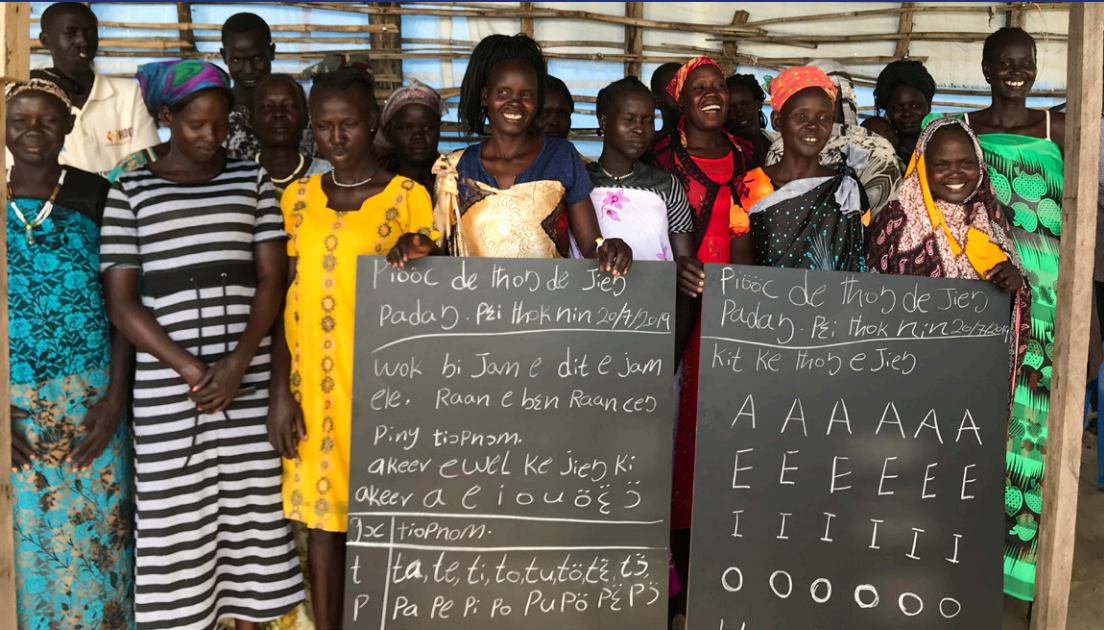 Piööc de thoŋ de Jieŋ
Padaŋ. Pɛi thok nin 20/7/2019
wok bi Jam e dit e jam
ele. Raan e bɛn Raan ceŋ
Piny tiɔpnɔm.
akeer ewɛl ke jieŋ ki
akeer a e i o u ö ɛ̈ ɔ̈
gx tiɔpnɔm.
t ta, te, ti, to, tu, tö, tɛ̈, tɔ̈,
P Pa Pe Pi Po Pu Pö Pɛ̈ Pɔ̈
Piööc de thoŋ de Jieŋ
Padaŋ. Pɛi thok nin 20/7/2019
Kit ke thoŋ e Jieŋ
A A A A A A
E E E E E E
I I I I I I
O O O O O O